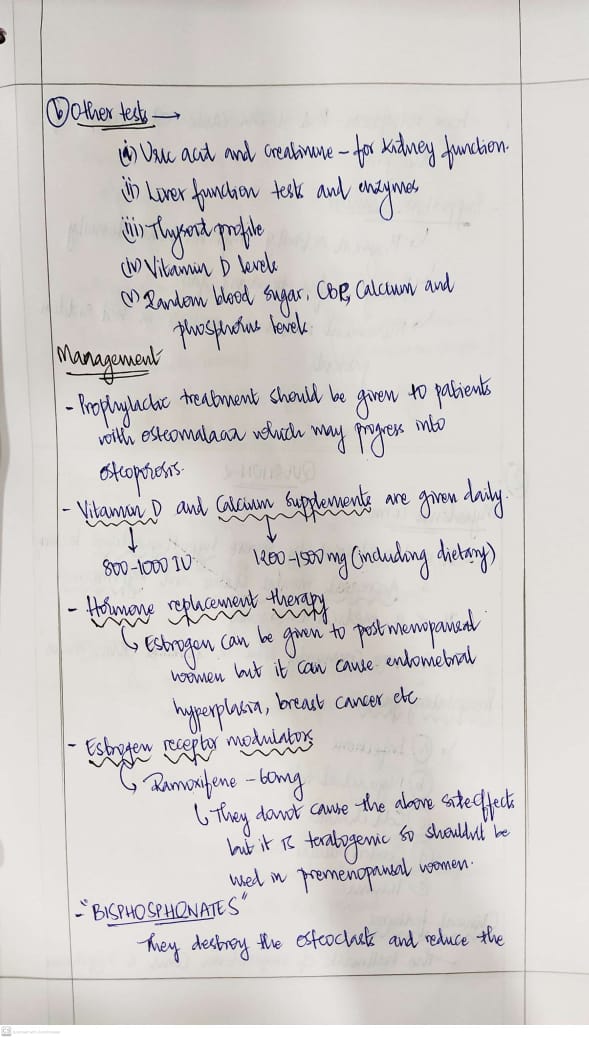 (b) Other tests →
(i) Uric acid and creatinine – for kidney function.
(ii) Liver function tests and enzymes
(iii) Thyroid profile
(iv) Vitamin D levels
(v) Random blood sugar, CBP, Calcium and
phosphorus levels
Management
- Prophylactic treatment should be given to patients
with osteomalacia which may progress into
osteoporosis.
- Vitamin D and Calcium Supplements are given daily.
↓ ↓
800-1000 IU 1200-1500 mg (including dietary)
- Hormone replacement therapy
↳ Estrogen can be given to postmenopausal
women but it can cause endometrial
hyperplasia, breast cancer etc
- Estrogen receptor modulators
↳ Ramoxifene - 60mg
↳ They don't cause the above side effects
but it is teratogenic so shouldn't be
used in premenopausal women.
- "BISPHOSPHONATES"
They destroy the osteoclasts and reduce the